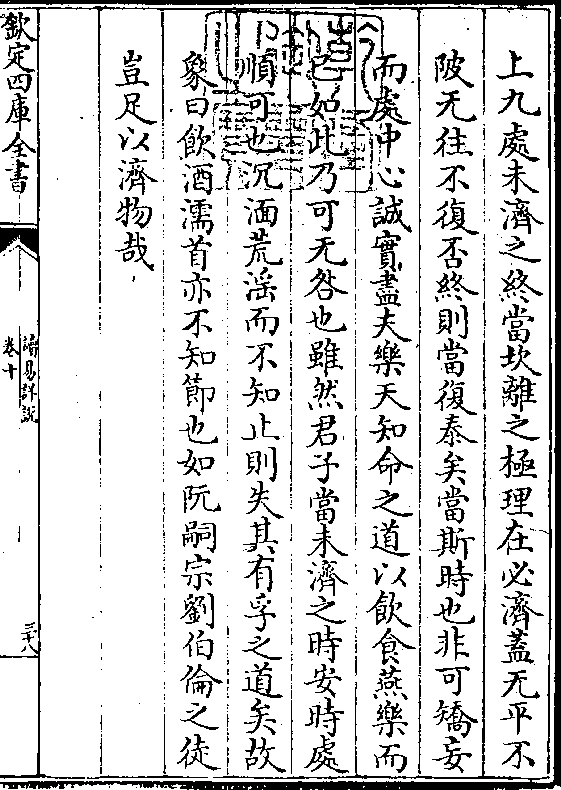 上九處未濟之終當坎離之極理在必濟蓋无平不
陂无往不復否終則當復泰矣當斯時也非可矯妄
而處中心誠實盡夫樂天知命之道以飲食燕樂而
已如此乃可无咎也雖然君子當未濟之時安時處
順可也沉湎荒滛而不知止則失其有孚之道矣故
象曰飲酒濡首亦不知節也如阮嗣宗劉伯倫之徒
豈足以濟物哉
欽定四庫全書
讀易詳說
卷十
三十八